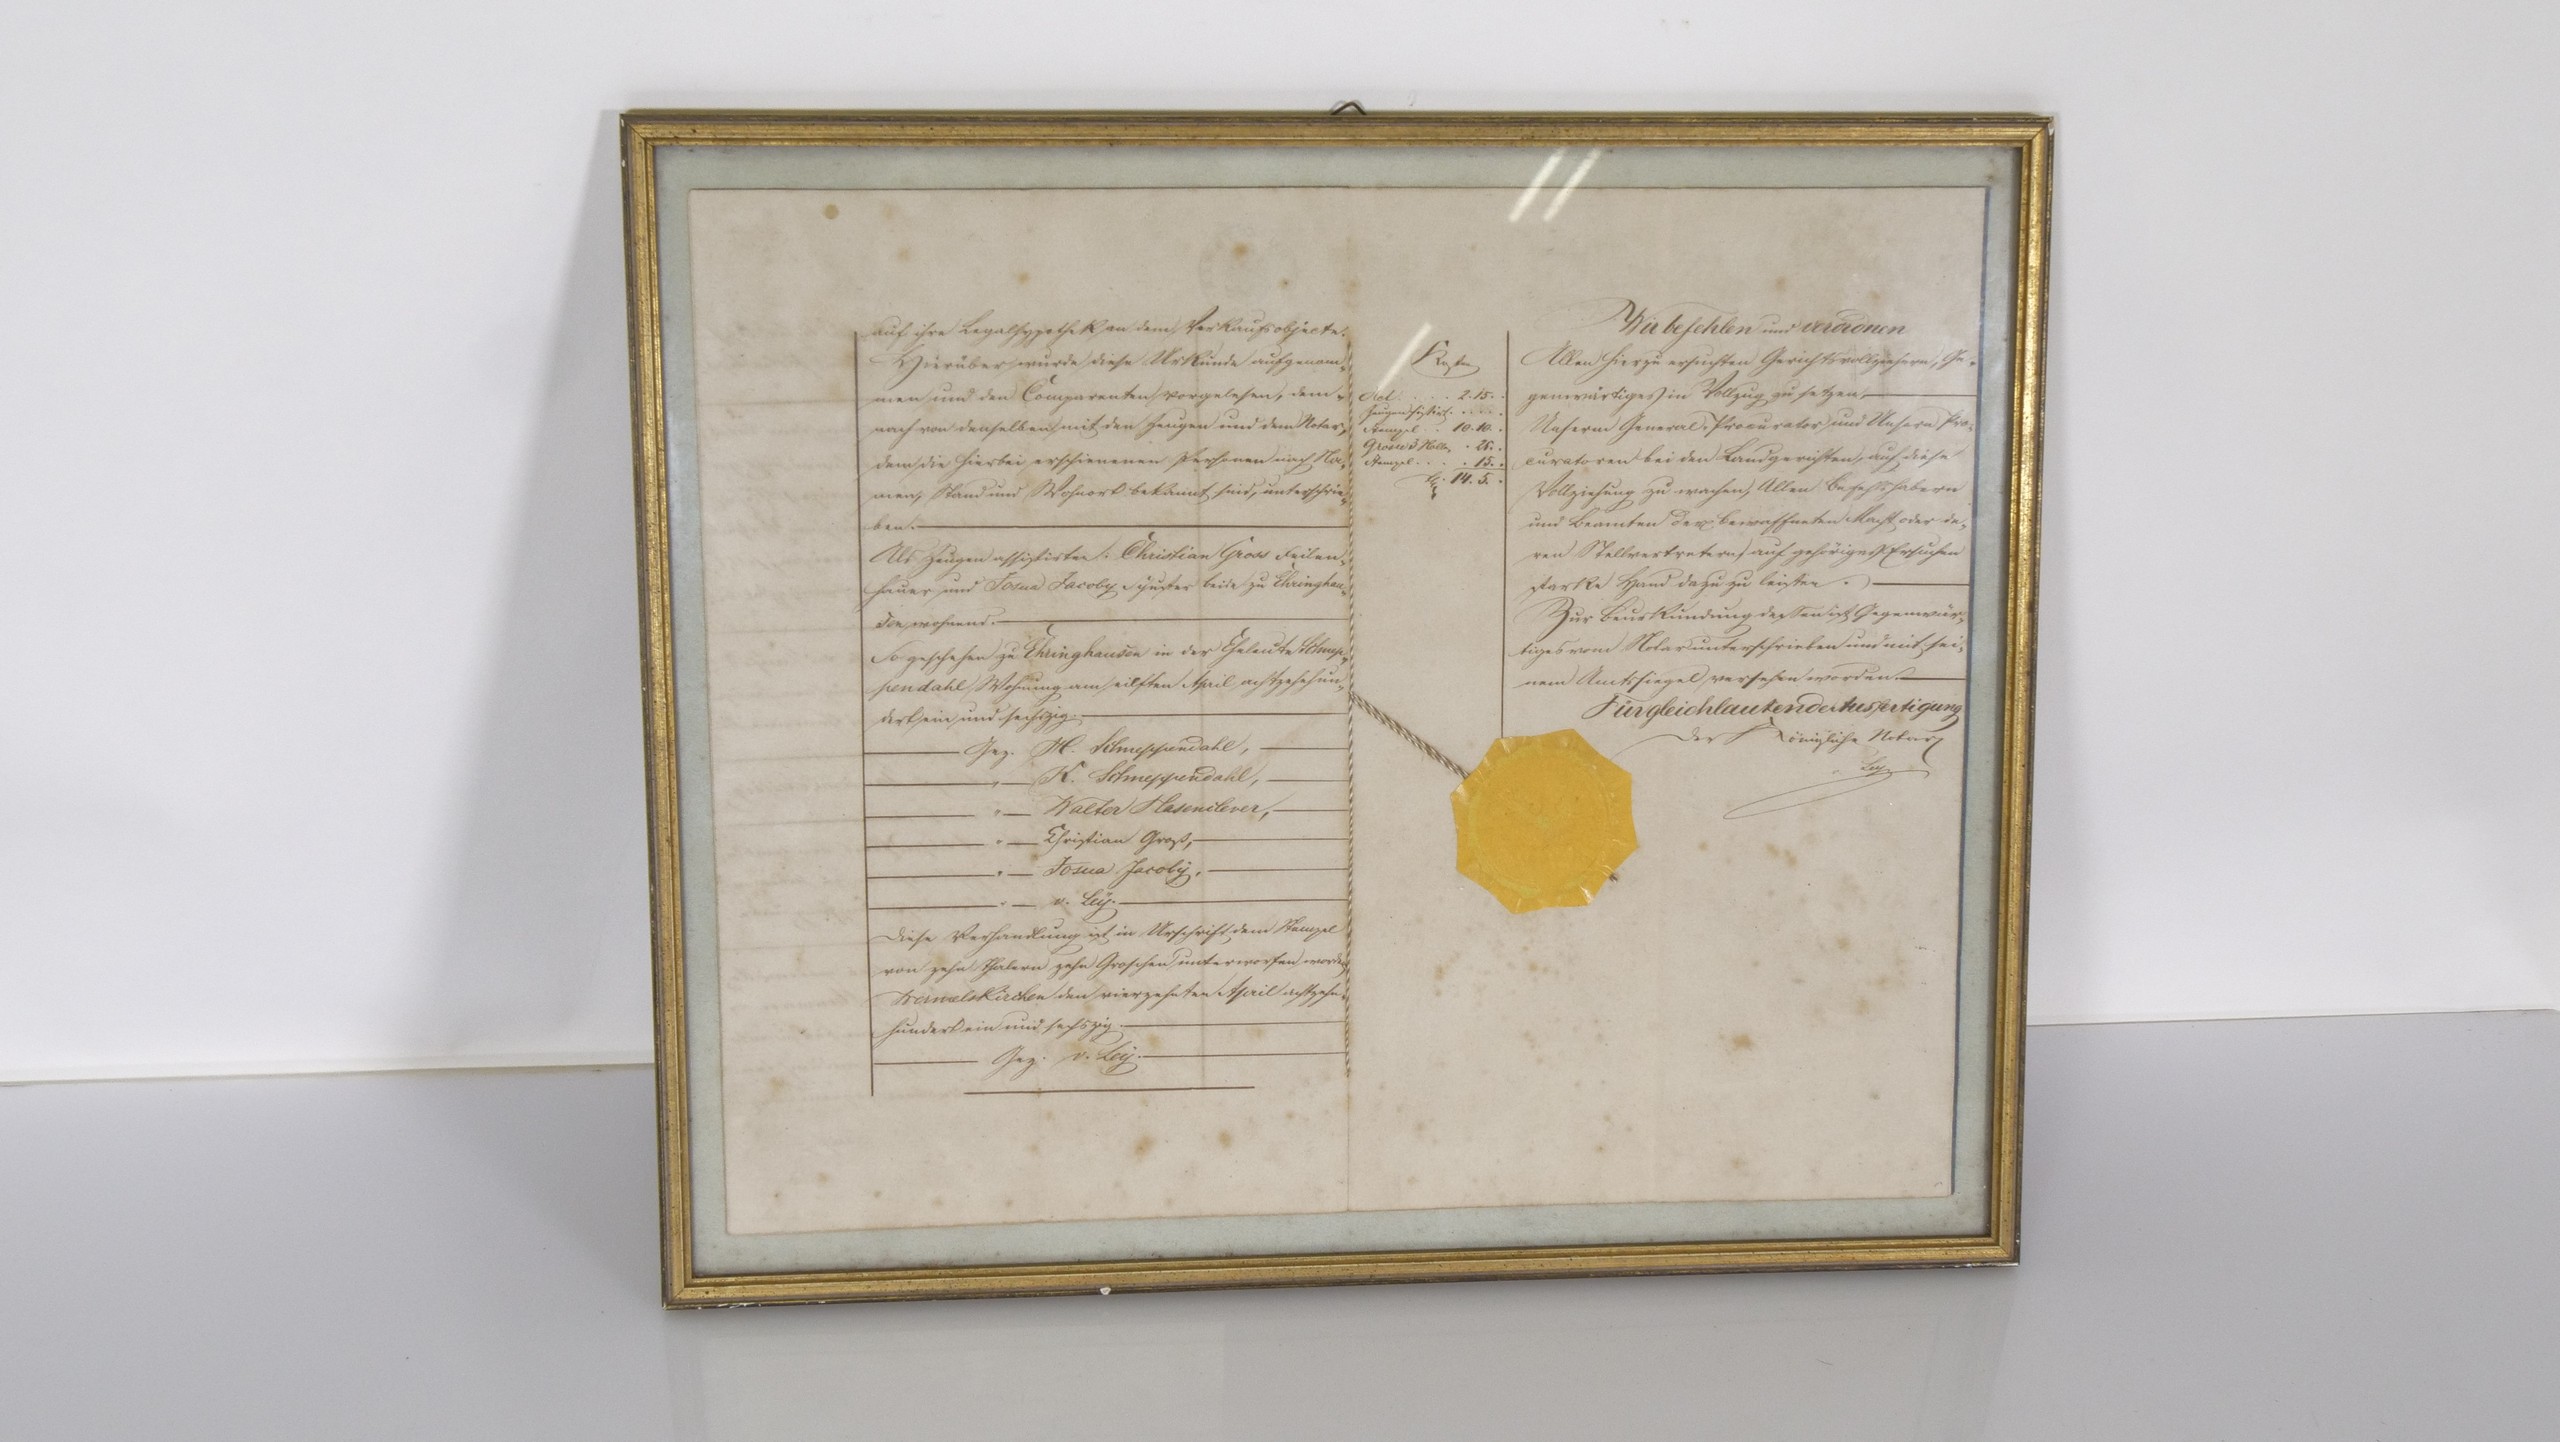 auf ihre Legalhypothek an dem Verkaufsobjecte.
Hierüber wurde diese Urkunde aufgenom-
men und den Comparenten vorgelesen, dem-
nach von denselben mit den Zeugen und dem Notar,
dem die hierbei erschienenen Personen nach Na-
men, Stand und Wohnort bekannt sind, unterschrie-
ben.
Als Zeugen assistirten: Christian Gross Feilen-
hauer und Josua Jacoby Schuster beide zu Ehringhau-
sen wohnend.
So geschehen zu Ehringhausen in der Eheleute Schnep-
pendahl Wohnung am eilften April achtzehnhun-
dert ein und sechszig.
Gez. H. Schneppendahl,
" K. Schneppendahl,
" Walter Hasenclever,
" Christian Groß,
" Josua Jacoby.
" v. Ley.
Diese Verhandlung ist in Urschrift dem Stempel
von zehn Thalern zehn Groschen unterworfen worden
Wermelskirchen den vierzehnten April achtzehn-
hundert ein und sechszig.
Gez. v. Ley.
Kosten
Act. . . . 2. 15.
Stempel . . 10. 10.
. 25.
Stempel . . . 15.
14. 5.
Wir befehlen und verordnen
Allen hierzu ersuchten Gerichtsvollziehern, Ge-
genwärtiges in Vollzug zu setzen,
Unserm General-Procurator und Unsern Pro-
curatoren bei den Landgerichten, auf diese
Vollziehung zu wachen, Allen Befehlshabern
und Beamten der bewaffneten Macht oder de-
ren Stellvertretern auf gehöriges Ersuchen
starke Hand dazu zu leisten.
Zur Beurkundung dessen ist Gegenwär-
tiges vom Notar unterschrieben und mit sei-
nem Amtssiegel versehen worden.
Für gleichlautende Ausfertigung
Der Königliche Notar
v. Ley